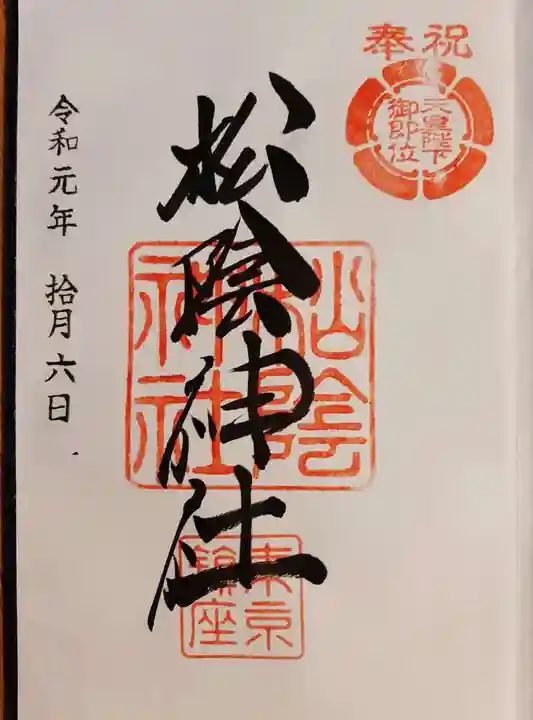 奉祝
天皇陛下
御即位
松陰神社
松陰
神社
東京
鎮座
令和元年 拾月六日